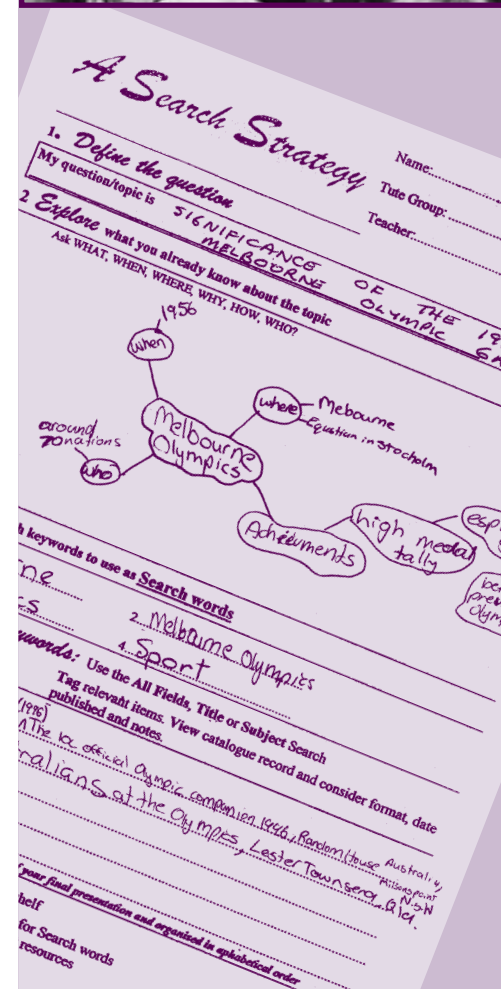 A Search Strategy
Name:
Tute Group:
Teacher
1. Define the question
My question/topic is SIGNIFICANCE OF THE 19
MELBOURNE OLYMPIC
2 Explore what you already know about the topic
Ask WHAT, WHEN, WHERE, WHY, HOW, WHO?
1956
when
where
Mebourne
Equstian in Stocholm
Melbourne
Olympics
around
70 nations
who
Achievments
high medal
tally
esp
keywords to use as Search words
2. Melbourne Olympics
4. Sport
Use the All Fields, Title or Subject Search
Tag relevant items. View catalogue record and consider format, date
published and notes.
(1996)
The Ioc official Olympic companion 1996, Random House Australia,
Milsons point
N.S.W
at the Olympics, Lester Townsend, Qld.
your final presentation and organised in alphabetical order
helf
for Search words
resources